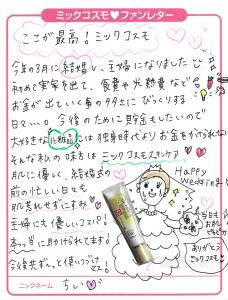 ミックコスモ♥ファンレター
ここが最高！ミックコスモ
今年の3月に結婚し、主婦になりました
初めて実家を出て、食費や光熱費など
お金が出ていく事の多さにびっくりする
日々…。今後のために貯金もしたいので
大好きな化粧品には独身時代よりお金をかけられない
そんな私の味方はミックコスモスキンケア
肌に優しく、結婚式の
前の忙しい日々も
肌荒れせずにすみ
主婦にも優しいコスパ！
本っ当に助けられてます！
今後共ずーっと使いつづけ
マス！
Happy
Wedding
当日も
ありがとう
ミックコスモ
ニックネーム
ちぃ